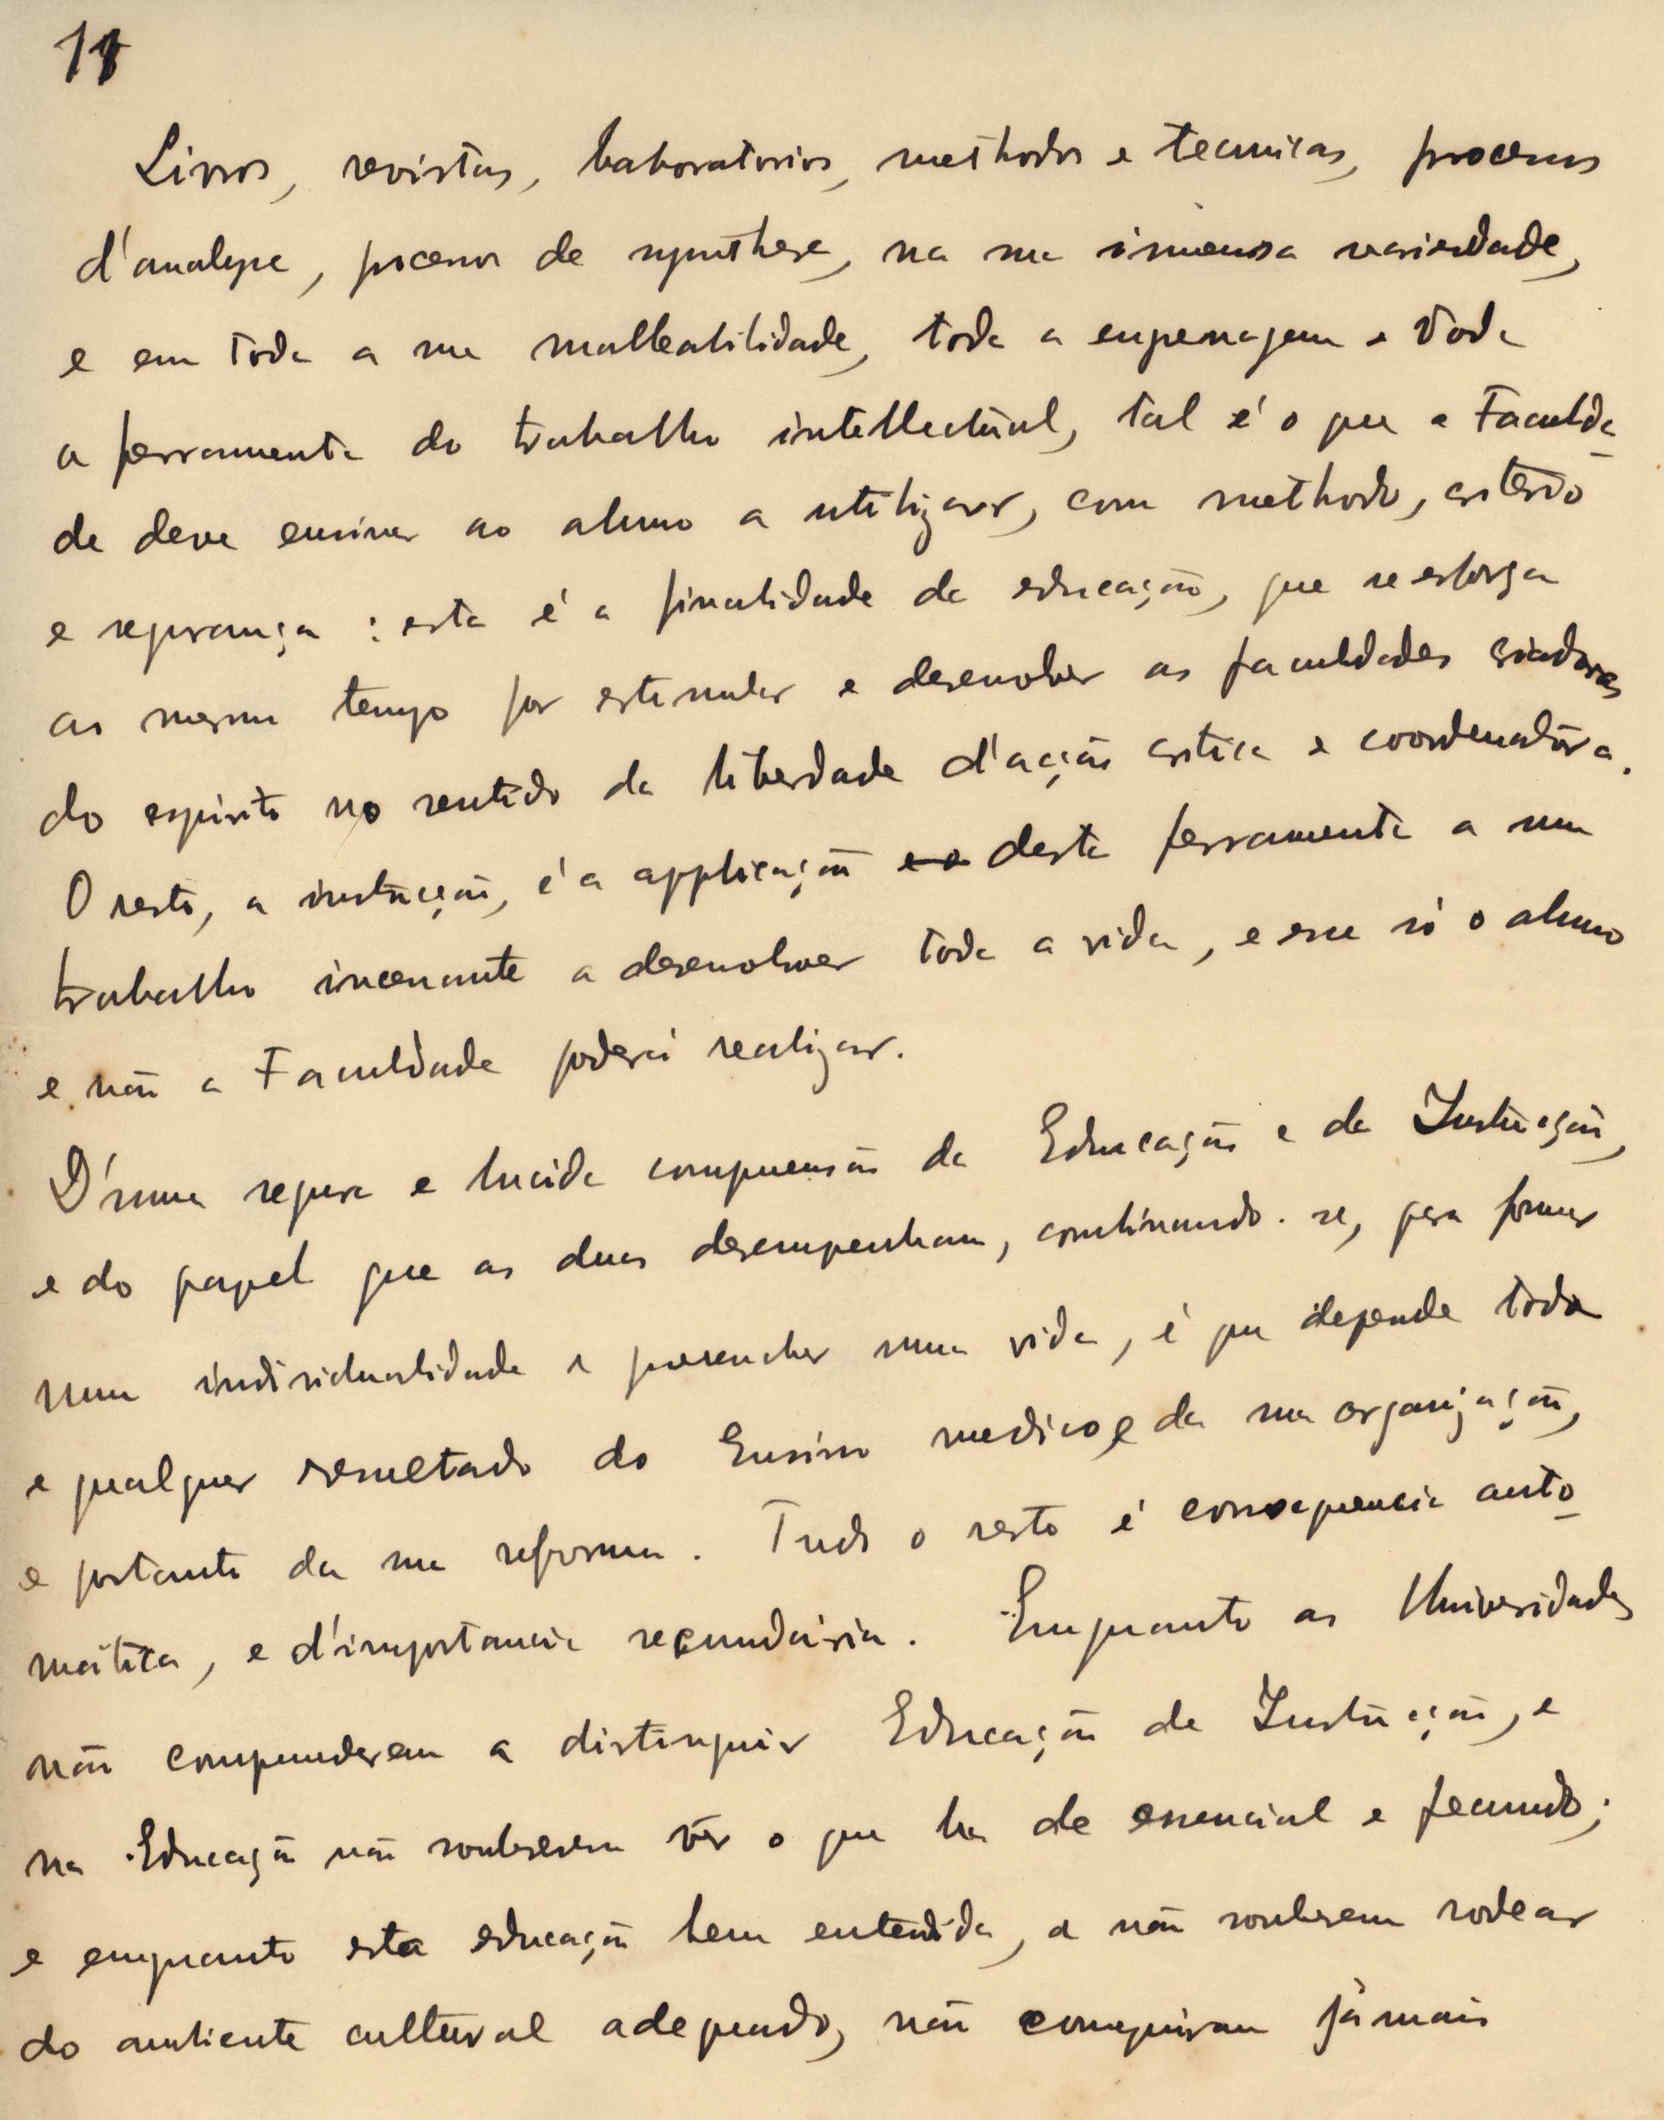 11
Livros, revistas, laboratorios, methodos e tecnicas, processos
d'analyse, processos de synthese, na sua immensa variedade,
e em toda a sua malleabilidade, toda a engrenagem e toda
a ferramenta do trabalho intellectual, tal é o que a Faculda-
de deve ensinar ao aluno a utilizar, com methodo, criterio
e segurança : esta é a finalidade da educação, que se esforça
ao mesmo tempo por estimular e desenvolver as faculdades criadoras
do espirito no sentido da liberdade d'acção critica e coordenadora.
O resto, a instrucção, é a applicação e a desta ferramenta a um
trabalho incessante a desenvolver toda a vida, e esse só o aluno
e não a Faculdade poderá realizar.
D'uma segura e lucida compreensão da Educação e da Instrucção,
e do papel que as duas desempenham, combinando-se, para formar
uma individualidade e preencher uma vida, é que depende todo
e qualquer resultado do Ensino medico e da sua organização,
e portanto da sua reforma. Tudo o resto é consequencia auto-
mática, e d'importancia secundária. Emquanto as Universidades
não compreenderem a distinguir Educação de Instrucção, e
na Educação não souberem vêr o que ha de essencial e fecundo;
e emquanto esta educação bem entendida, a não souberem rodear
do ambiente cultural adequado, não conseguiram jámais